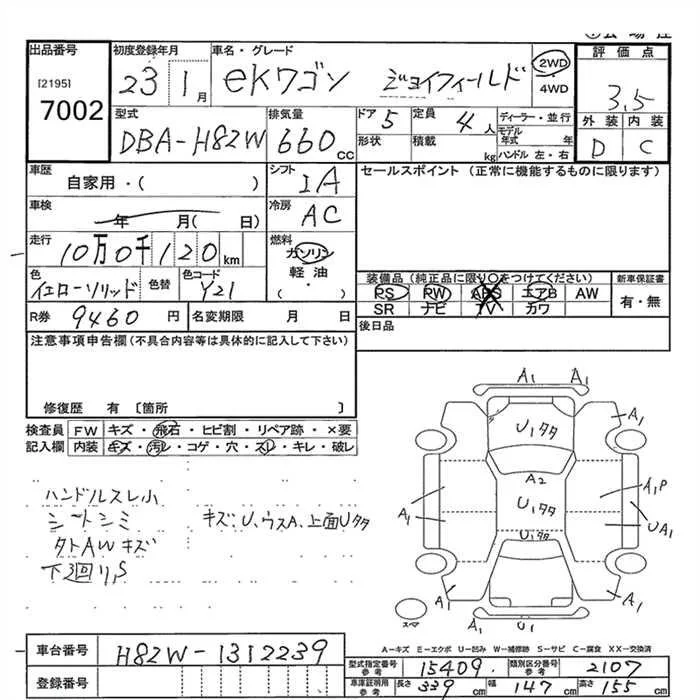 出品番号 初度登録年月 車名・グレード 評価点
[2195] 23 1月 eKワゴン ジョイフィールド 2WD 4WD 3.5
7002
型式 排気量 ドア 5 定員 4人 ディーラー・並行 外装 内装
DBA-H82W 660cc 形状 積載 kg モデル年式 年 ハンドル 左・右 D C
車歴 シフト セールスポイント (正常に機能するものに限ります)
自家用・( ) IA
車検 年 月( 日) 冷房 AC
走行 10万0千120km 燃料 ガソリン
軽油
・( )
色 色替 色コード 装備品(純正品に限り○をつけてください) 新車保証書
イエローソリッド Y21 PS PW ABS エアB AW 有・無
SR ナビ TV カワ
R券 9460円 名変期限 月 日 後日品
注意事項申告欄(不具合内容等は具体的に記入して下さい)
修復歴 有 〔箇所 〕
検査員 FW キズ・飛石・ヒビ割・リペア跡・×要
記入欄 内装 キズ・汚レ・コゲ・穴・スレ・キレ・破レ
ハンドルスレ小
シートシミ キズ、U、ウスA、上面Uタタ
タトAWキズ
下廻りS
A1 A1
A1
U1タタ
A2
A1P
U1タタ
A1
UA1
U1タタ
A1 A1
A1
スマ
A-キズ E-エクボ U-凹み W-補修跡 S-サビ C-腐食 XX-交換済
車台番号 H82W-1312239
型式指定番号 参考 15409 類別区分番号 参考 2107
登録番号 車庫証明用 参考 長さ 339cm 幅 147cm 高さ 155cm